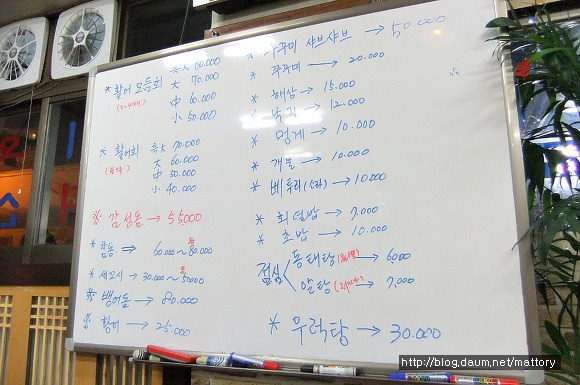 * 활어 모듬회 特大 80.000
大 70.000
中 60.000
小 50.000
* 활어회 特大 70.000
大 60.000
中 50.000
小 40.000
※ 감성돔 → 55.000
* 참돔 ⇒ 60.000~80.000
* 세꼬시 → 30.000~50000
※ 뱅어돔 → 80.000
※ 황어 → 25.000
* 쭈꾸미 샤브샤브 → 50.000
* 쭈꾸미 → 20.000
* 해삼 → 15.000
* 낙지 → 12.000
* 멍게 → 10.000
* 개불 → 10.000
* 삐뚜리(소라) → 10.000
* 회덮밥 → 7,000
* 초밥 → 10.000
점심 < 동태탕 → 6000
알탕 → 7,000
* 우럭탕 → 30.000
http://blog.daum.net/mattory